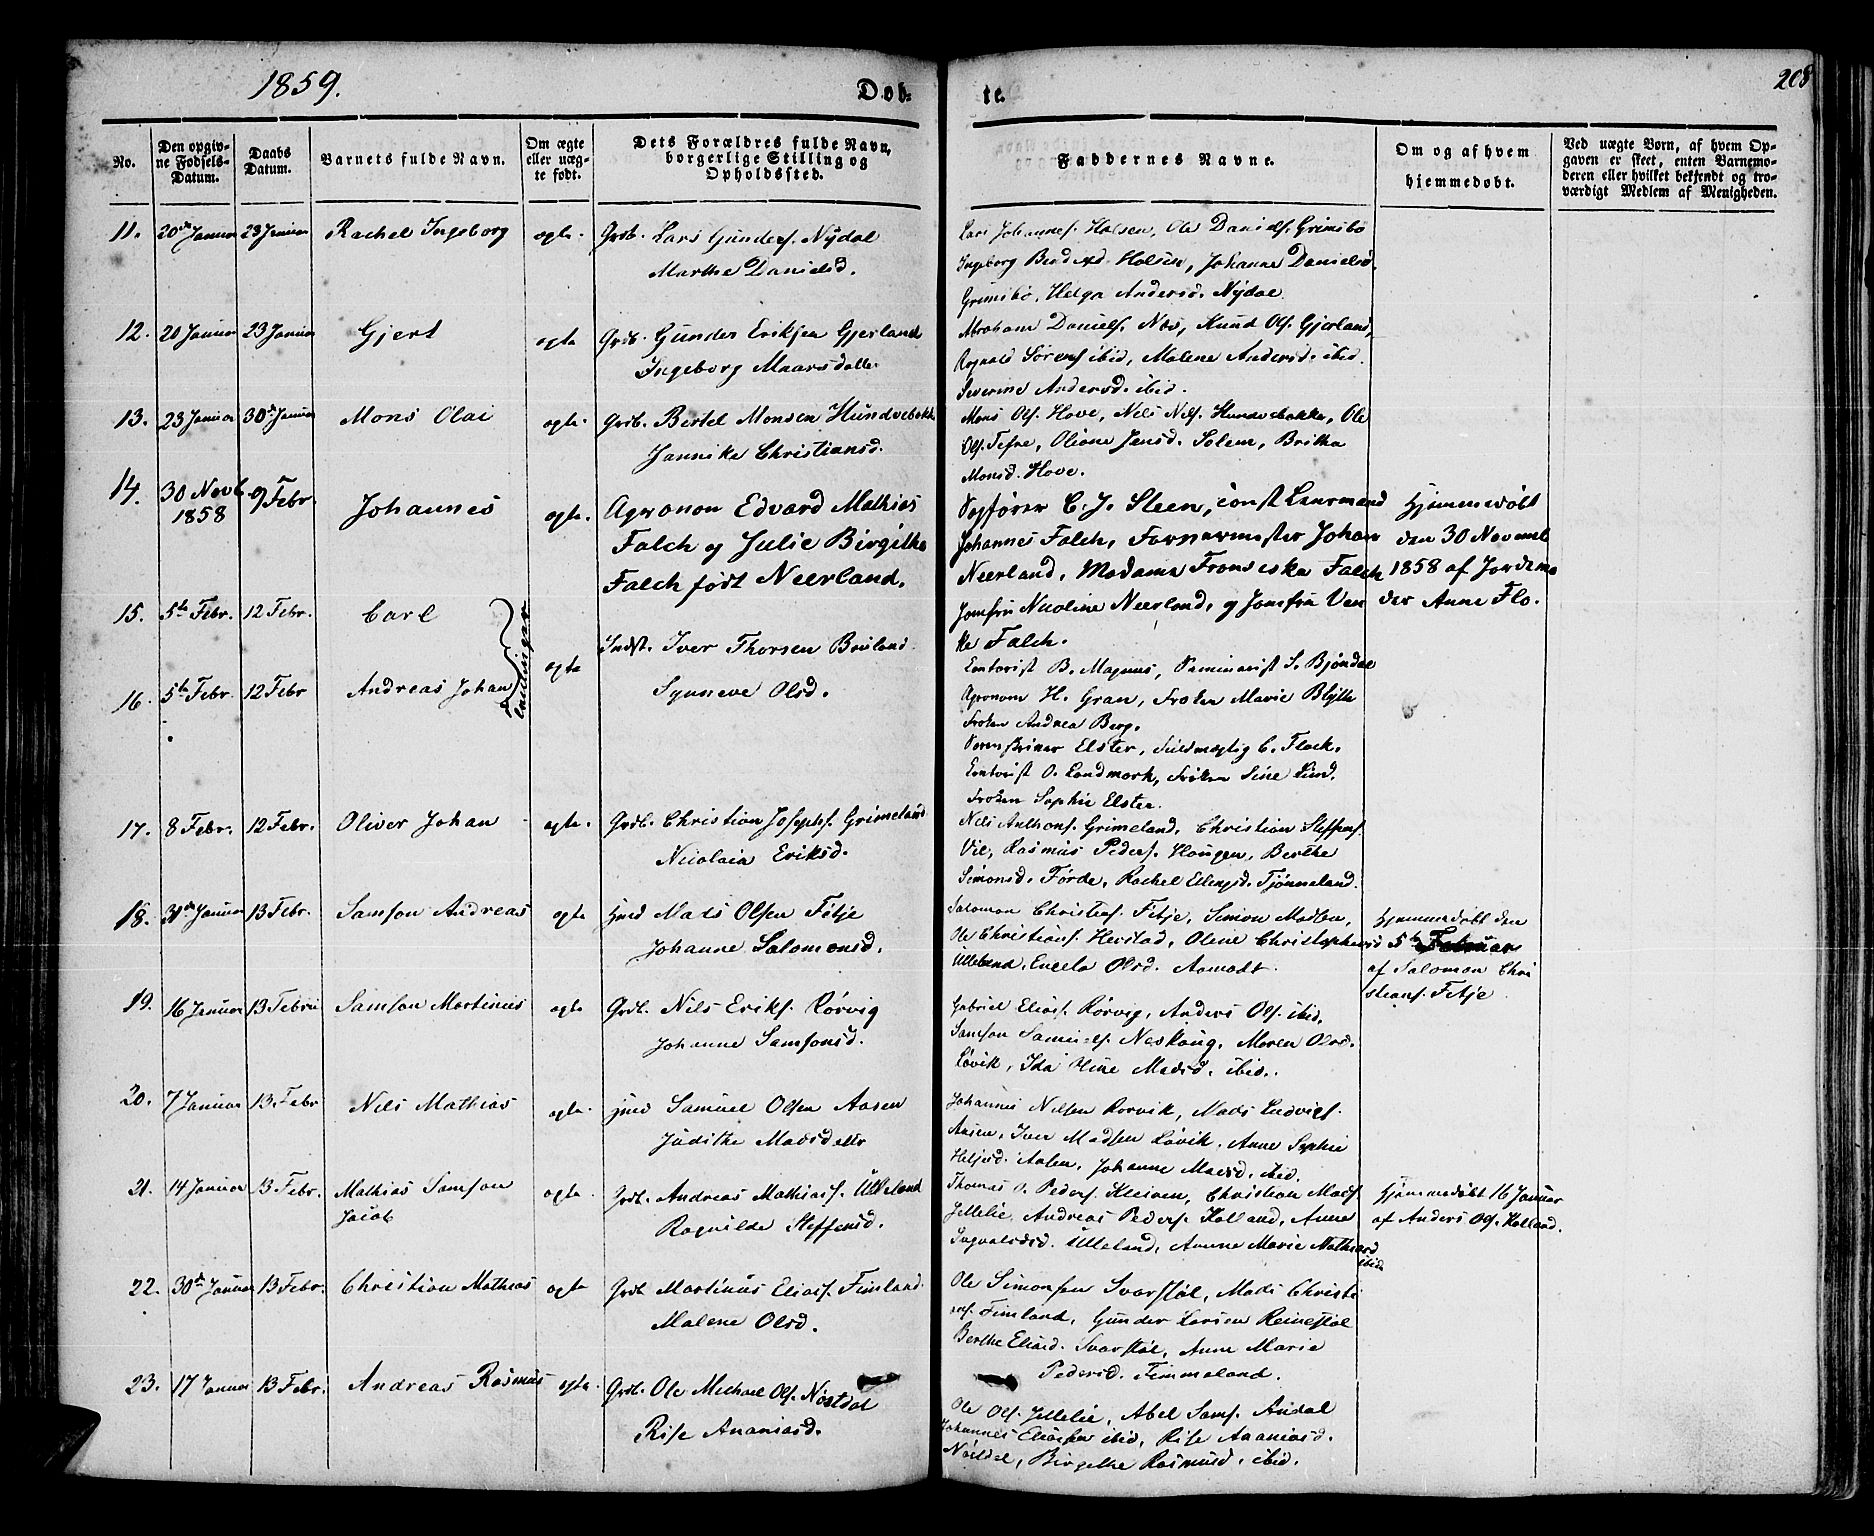 1859.
Døb-
te.
208
No.
Den opgiv-
ne Fødsels-
Datum.
Daabs
Datum.
Barnets fulde Navn.
Om ægte
eller uæg-
te født.
Dets Forældres fulde Navn,
borgerlige Stilling og
Opholdssted.
Faddernes Navne.
Om og af hvem
hjemmedøbt.
Ved uægte Børn, af hvem Op-
gaven er skeet, enten Barnemo-
deren eller hvilket bekjendt og tro-
værdigt Medlem af Menigheden.
11. 20de Januar 23 Januar Rachel Ingeborg ægte. Grdb. Lars Gunders. Nydal
Marthe Danielsd.
Lars Johannes. Holsen, Ole Daniels. Grimsbø
Ingeborg Bendixd. Holsen, Johanne Danielsd.
Grimsbø, Helga Andersd. Nydal
12. 20 Januar 23 Januar Gjert ægte Grdb. Gunder Eriksen Gjerland
Ingeborg Maarsdatter
Abraham Daniels. Næs, Knud Ols. Gjerland,
Rognald Sørens. ibid, Malene Andersd. ibid.
Severine Andersd. ibid.
13. 23 Januar 30te Januar Mons Olai ægte. Grdb. Bertel Monsen Hundvebakke
Jannike Christiansd.
Mons Ols. Hove, Nels Nels. Hundvebakke, Ole
Ols. Tefre, Oliane Jensd. Solem, Britha
Monsd. Hove.
14. 30 Novb. 1858 9 Febr. Johannes ægte. Agronom Edvard Mathias
Falch og Julie Birgithe
Falch født Neerland.
Sagfører C. J. Steen, const Lensmand
Johannes Falch, Farvermester Johan
Neerland, Madame Fransiska Falch
Jomfru Nicoline Neerland, og Jomfru Ven
ke Falch.
Hjemmedøbt
den 30 Novemb.
1858 af Jordemo
der Anne Flo.
15. 5te Febr. 12 Febr. Carl
16. 5te Febr. 12 Febr Andreas Johan
Tvillinger
ægte
Indst. Iver Thorsen Bruland.
Synneve Olsd.
Contorist B. Magnus, Seminarist S. Bjøndal
Agronom H. Gran, Frøken Marie Blytt
Frøken Andrea Berg.
Sorenskriver Elster, Fuldmægtig C. Flock.
Contorist O. Landmark, Frøken Sine Lund.
Frøken Sophie Elster.
17. 8 Febr. 12 Febr. Oliver Johan ægte. Grdb. Christian Josephs. Grimeland
Nicolaia Eriksd.
Nils Anthons. Grimeland, Christian Steffens.
Vie, Rasmus Peders. Hougen, Berthe
Simonsd. Førde, Rachel Ellingsd. Tjønneland.
18. 31te Januar 13 Febr. Samson Andreas ægte Hmd Mads Olsen Fitje
Johanne Salomonsd.
Salomon Christens. Fitje, Simon Madsen,
Ole Christians. Herstad, Oline Christophersd
Ulleland, Engela Olsd. Aamodt.
Hjemmedøbt den
5te Februar
af Salomon Chri
stians. Fitje.
19. 16 Januar 13 Februar Samson Martinus ægte Grdb. Nils Eriks. Rørvig
Johanne Samsonsd.
Gabriel Elias. Rørvig, Anders Ols. ibid,
Samson Samuels. Neskoug, Maren Olsd.
Løvik, Ida Oline Madsd. ibid.
20. 7 Januar 13 Febr Nils Mathias ægte. Hmd Samuel Olsen Aasen
Judithe Madsdatter
Johannes Nilsen Rørvik, Mads Ludvigs.
Aasen, Iver Madsen Løvik, Anne Sophie
Heljesd. Aasen, Johanne Madsd. ibid.
21. 14 Januar 13 Febr. Mathias Samson
Jacob
ægte Grdb. Andreas Mathias. Ulleland
Ragnilde Steffensd.
Thomas O. Peders. Kleiven, Christian Mads.
Jellelie, Andreas Peders. Holland, Anne
Ingvaldsd. Ulleland, Anne Marie Mathiasd
ibid.
Hjemmedøbt 16 Januar
af Anders Ols. Holland.
22. 30te Januar 13 Febr. Christian Mathias ægte Grdb. Martinus Elias. Fimland.
Malene Olsd.
Ole Simonsen Svarstøl, Mads Christi
ans. Fimland, Gunder Larsen Reinestøl
Berthe Eliasd. Svarstøl, Anne Marie
Pedersd. Fimmeland.
23. 17 Januar 13 Febr. Andreas Rasmus ægte. Grdb. Ole Michael Ols. Nøstdal
Rise Ananiasd.
Ole Ols. Jellelie, Abel Sams. Andal
Johannes Eliassen ibid, Rise Ananiasd.
Nøstdal, Birgithe Rasmusd. ibid.